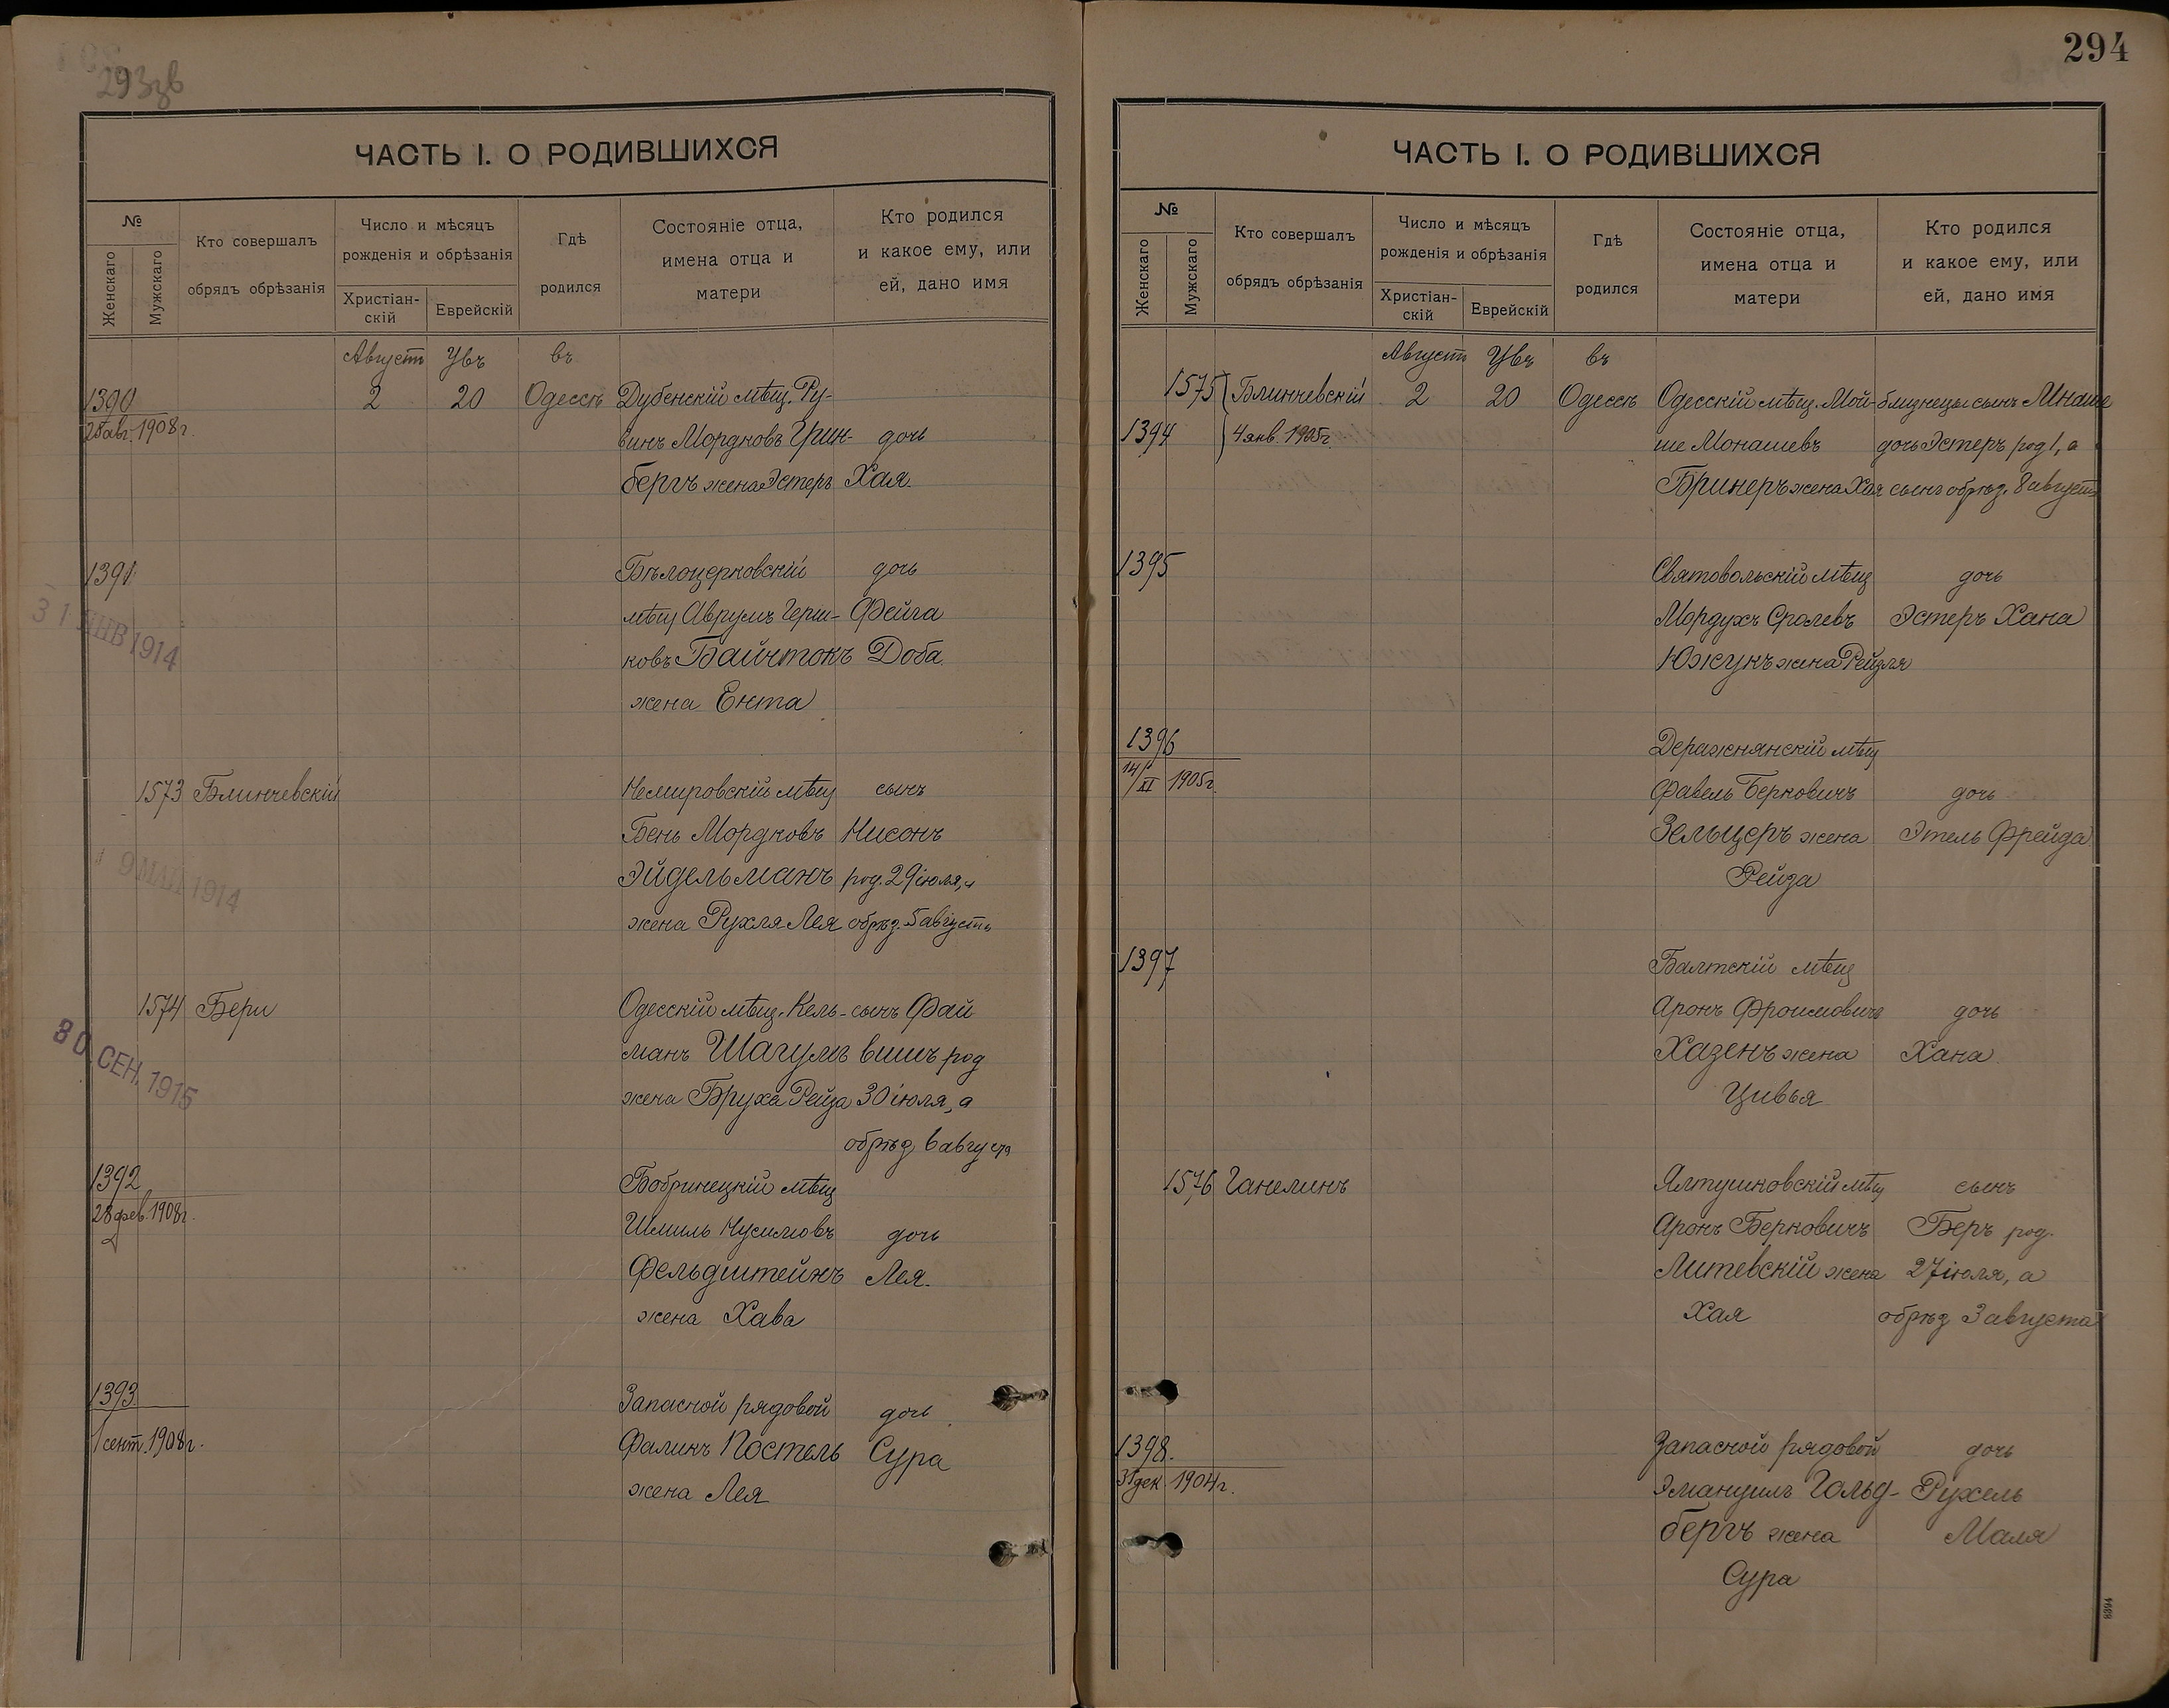 293зв
ЧАСТЬ I. О РОДИВШИХСЯ
№
Женскаго
Мужскаго
Кто совершалъ
обрядъ обрѣзанія
Число и мѣсяцъ
рожденія и обрѣзанія
Христіан-
скій
Еврейскій
Гдѣ
родился
Состояніе отца,
имена отца и
матери
Кто родился
и какое ему, или
ей, дано имя
Августъ Увъ въ
1390 2 20 Одессѣ Дубенскій мѣщ. Ру-
28 авг. 1908 г. винъ Мордковъ Грин- дочь
бергъ жена Эстеръ Хая.
1391 Бѣлоцерковскій дочь
мѣщ Аврумъ Герш- Фейга
31 ЯНВ 1914
ковъ Байчтокъ Доба.
жена Ента
1573 Блинчевскій Немировскій мѣщ сынъ
Бень Мордковъ Нисонъ
9 МАЯ 1914
Эйдельманъ род. 29 іюля, а
жена Рухля Лея обрѣз. 5 августа
1574 Бери Одесскій мѣщ. Кель- сынъ Фай
30 СЕН. 1915
манъ Шагулъ вишъ род
жена Бруха Рейза 30 іюля, а
обрѣз 6 августа
1392 Бобринецкій мѣщ
28 фев. 1908 г. Шмиль Нусимовъ дочь
Фельдштейнъ Лея.
жена Хава
1393 Запасной рядовой дочь
1 сент. 1908 г. Фаликъ Постель Сура
жена Лея
294
ЧАСТЬ I. О РОДИВШИХСЯ
№
Женскаго
Мужскаго
Кто совершалъ
обрядъ обрѣзанія
Число и мѣсяцъ
рожденія и обрѣзанія
Христіан-
скій
Еврейскій
Гдѣ
родился
Состояніе отца,
имена отца и
матери
Кто родился
и какое ему, или
ей, дано имя
Августъ Увъ въ
1575 Блинчевскій 2 20 Одессѣ Одесскій мѣщ. Мой- близнецы сынъ Инаше
1394 4 янв. 1905 г. ше Монашевъ дочь Эстеръ род 1, а
Бринеръ жена Хая сынъ обрѣз. 8 августа
1395 Святовольскій мѣщ дочь
Мордухъ Сролевъ Эстеръ Хана
Южукъ жена Рейзля
1396 Деражнянскій мѣщ
14/XI 1905 г. Фавель Берковичъ дочь
Зельцеръ жена Этель Фрейда
Рейза
1397 Балтскій мѣщ
Аронъ Фроимовичъ дочь
Хазенъ жена Хана
Цивья
1576 Ганелинъ Ялтушковскій мѣщ сынъ
Аронъ Берковичъ Беръ род.
Литевскій жена 27 іюля, а
Хая обрѣз 3 августа
1398. Запасной рядовой дочь
31 дек. 1904 г. Эмануилъ Гольд- Рухель
бергъ жена Маля
Сура
8394